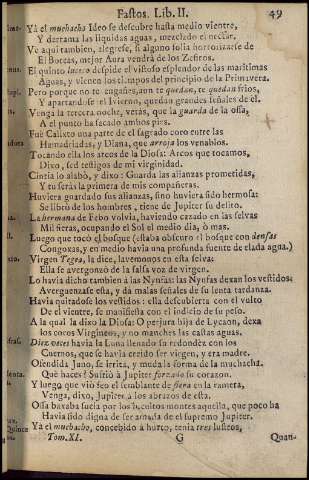 Fastos. Lib. II. 49
Ya el muchacho Ideo se descubre hasta medio vientre,
Y derrama las liquidas aguas, mezclado el nectar.
Ve aqui tambien, alegrese, si alguno solia horrorizarse de
El Boreas, mejor Aura vendrá de los Zefiros.
El quinto lucero despide el vistoso esplendor de las maritimas
Aguas, y vienen los tiempos del principio de la Primavera.
Pero porque no te engañes, aun te quedan, te quedan frios,
Y apartandose el Ivierno, quedan grandes señales de él.
Venga la tercera noche, verás, que la guarda de la ossa,
A el punto ha sacado ambos pies.
Fue Calixto una parte de el sagrado coro entre las
Hamadriadas, y Diana, que arroja los venablos.
Tocando ella los arcos de la Diosa: Arcos que tocamos,
Dixo, sed testigos de mi virginidad.
Cintia lo alabó, y dixo: Guarda las alianzas prometidas,
Y tu serás la primera de mis compañeras.
Huviera guardado sus alianzas, sino huviera sido hermosa:
Se libró de los hombres, tiene de Jupiter su delito.
La hermana de Febo volvia, haviendo cazado en las selvas
Mil fieras, ocupando el Sol el medio dia, ò mas.
Luego que tocó el bosque (estaba obscuro el bosque con densas
Congoxas, y en medio havia una profunda fuente de elada agua.)
Virgen Tegea, la dice, lavemonos en esta selva:
Ella se avergonzó de la falsa voz de virgen.
Lo havia dicho tambien à las Nynfas: las Nynfas dexan los vestidos:
Averguenzase esta, y dá malas señales de su lenta tardanza.
Havia quitadose los vestidos: ella descubierta con el vulto
De el vientre, se manifiesta con el indicio de su peso.
A la qual la dixo la Diosa: O perjura hija de Lycaon, dexa
los coros Virgineos, y no manches las castas aguas.
Diez veces havia la Luna llenado su redondéz con los
Cuernos, que se havia creido ser virgen, y era madre.
Ofendida Juno, se irrita, y muda la forma de la muchacha.
Què haces? Sufrió à Jupiter forzado su corazon.
Y luego que vió feo el semblante de fiera en la ramera,
Venga, dixo, Jupiter à los abrazos de esta.
Ossa baxaba sucia por los incultos montes aquella, que poco ha
Havia sido digna de ser amada de el supremo Jupiter.
Ya el muchacho, concebido à hurto, tenia tres lustros,
Tom. XI. G Quan-